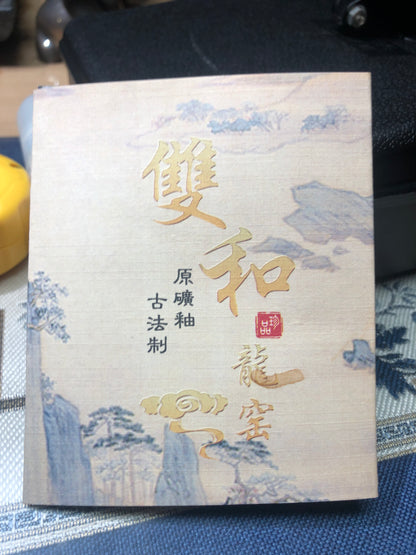 雙和
龍窑
原礦釉
古法制
珍品